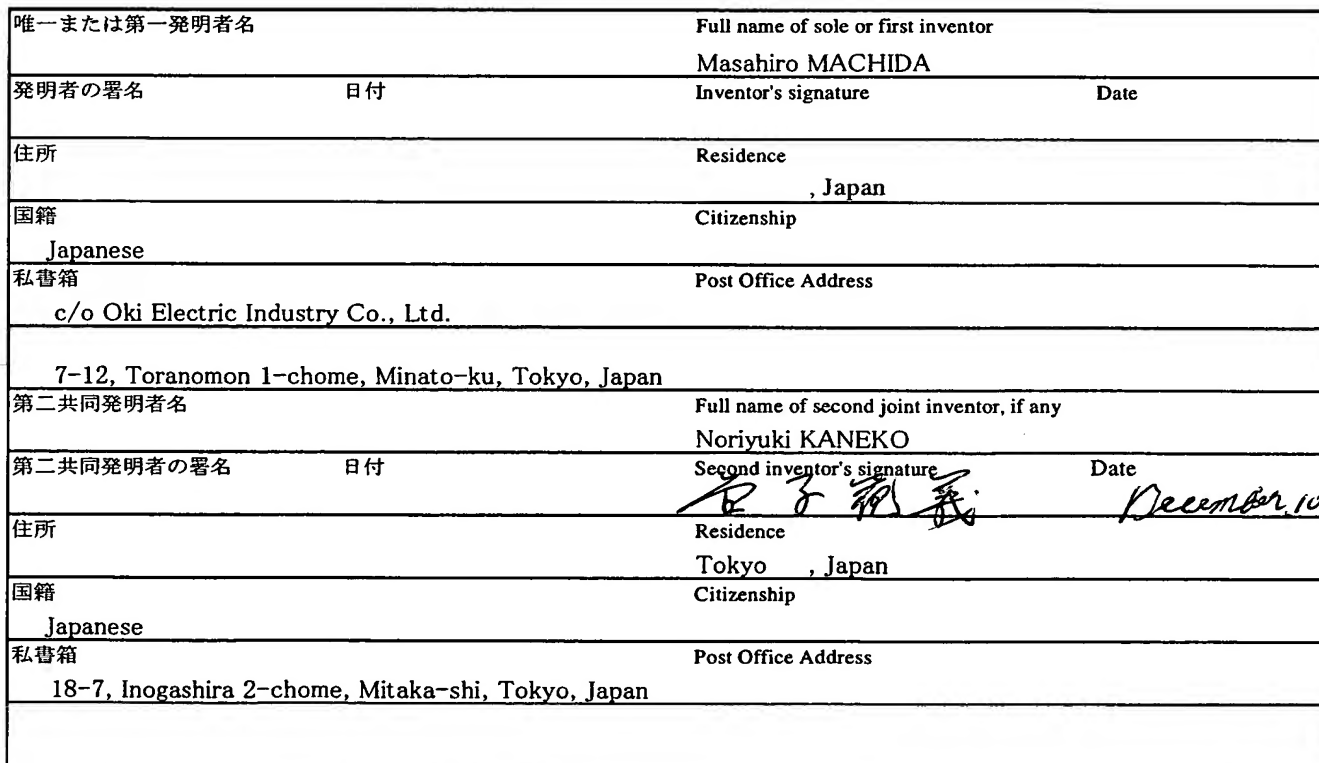 唯一または第一発明者名 Full name of sole or first inventor
Masahiro MACHIDA
発明者の署名 日付 Inventor's signature Date
住所 Residence
, Japan
国籍 Citizenship
Japanese
私書箱 Post Office Address
c/o Oki Electric Industry Co., Ltd.
7-12, Toranomon 1-chome, Minato-ku, Tokyo, Japan
第二共同発明者名 Full name of second joint inventor, if any
Noriyuki KANEKO
第二共同発明者の署名 日付 Second inventor's signature Date
子 December, 10
住所 Residence
Tokyo , Japan
国籍 Citizenship
Japanese
私書箱 Post Office Address
18-7, Inogashira 2-chome, Mitaka-shi, Tokyo, Japan